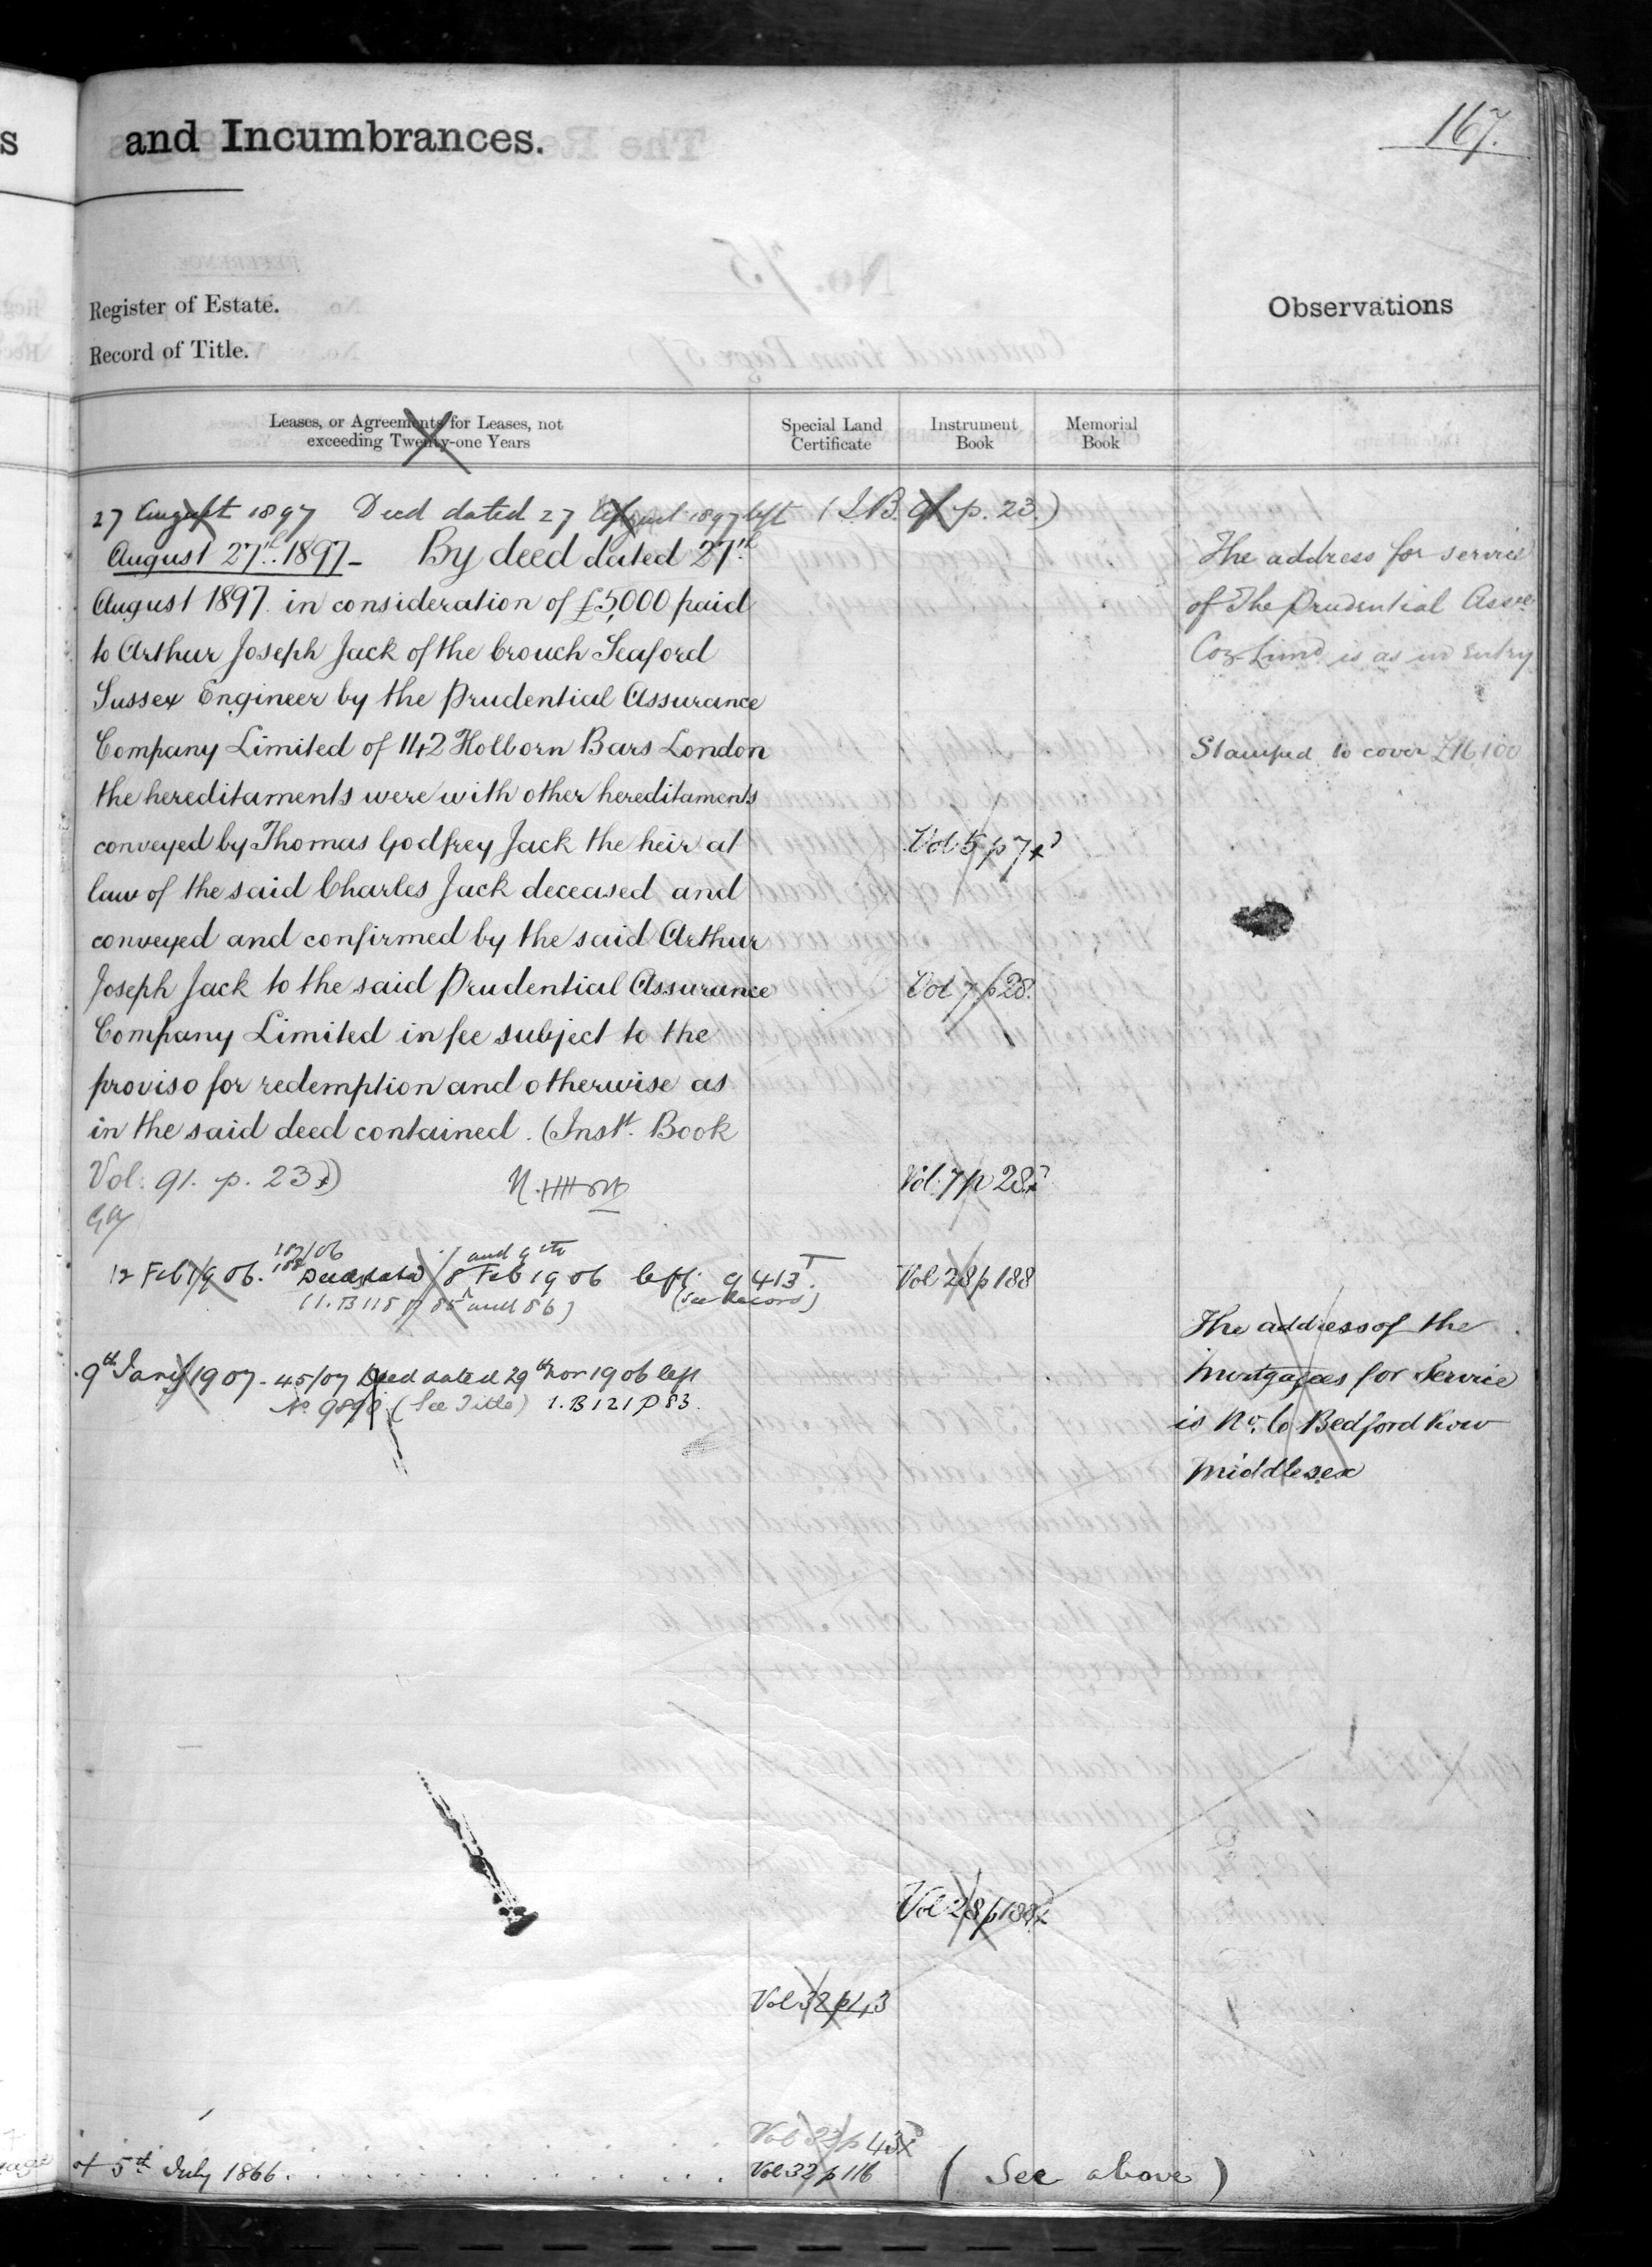 and Incumbrances.
167.
Register of Estate.
Record of Title.
Observations
Leases, or Agreements for Leases, not
exceeding Twenty-one Years
Special Land
Certificate
Instrument
Book
Memorial
Book
27 August 1897 Deed dated 27 August 1897 left (I.B. 91 p. 23.)
August 27th. 1897 - By deed dated 27th
August 1897 in consideration of £5,000 paid
to Arthur Joseph Jack of the Crouch Seaford
Sussex Engineer by the Prudential Assurance
Company Limited of 142 Holborn Bars London
the hereditaments were with other hereditaments
conveyed by Thomas Godfrey Jack the heir at
law of the said Charles Jack deceased and
conveyed and confirmed by the said Arthur
Joseph Jack to the said Prudential Assurance
Company Limited in fee subject to the
proviso for redemption and otherwise as
in the said deed contained. (Inst. Book
Vol: 91. p. 23)
12 Feb 1906. 187/06 188 Deeds dated 8 and 9th Feb 1906 left 9413
(I.B 115 p 85 and 86) (See Record)
9th Jany 1907 - 45/07 Deed dated 29th Nov 1906 left
No 9898 (See Title) I.B 121 P 83.
Vol 5 p 7
Vol 7 p 28.
Vol 7 p 28
Vol 28 p 188
Vol 28 p 188
Vol 32 p 43
Vol 32 p 43
of 5th July 1866. Vol 32 p 116 (See above)
The address for service
of The Prudential Assce
Coy Limd is as in Entry
Stamped to cover £16100
The address of the
Mortgagees for Service
is No. 6 Bedford Row
Middlesex